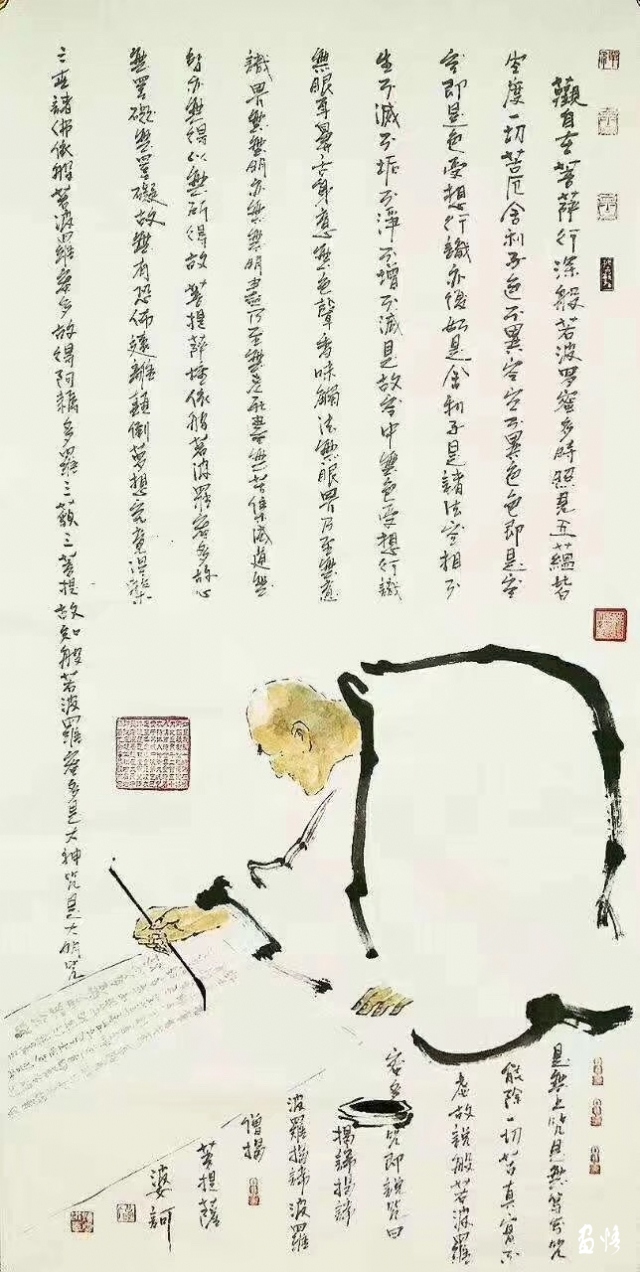 觀自在菩薩行深般若波罗蜜多時照見五蘊皆
空度一切苦厄舍利子色不異空空不異色色即是空
空即是色受想行識亦復如是舍利子是諸法空相不
生不滅不垢不淨不增不減是故空中無色受想行識
無眼耳鼻舌身意無色聲香味觸法無眼界乃至無意
識界無無明亦無無明盡乃至無老死盡無苦集滅道無
智亦無得以無所得故菩提薩埵依般若波羅蜜多故心
無罣礙無罣礙故無有恐怖遠離顛倒夢想究竟涅槃
三世諸佛依般若波羅蜜多故得阿耨多羅三藐三菩提故知般若波羅蜜多是大神咒是大明咒
是無上咒是無等等咒
能除一切苦真實不
虛故説般若波羅
蜜多咒即説咒曰
揭諦揭諦
波羅揭諦波羅
僧揭
菩提薩
婆訶